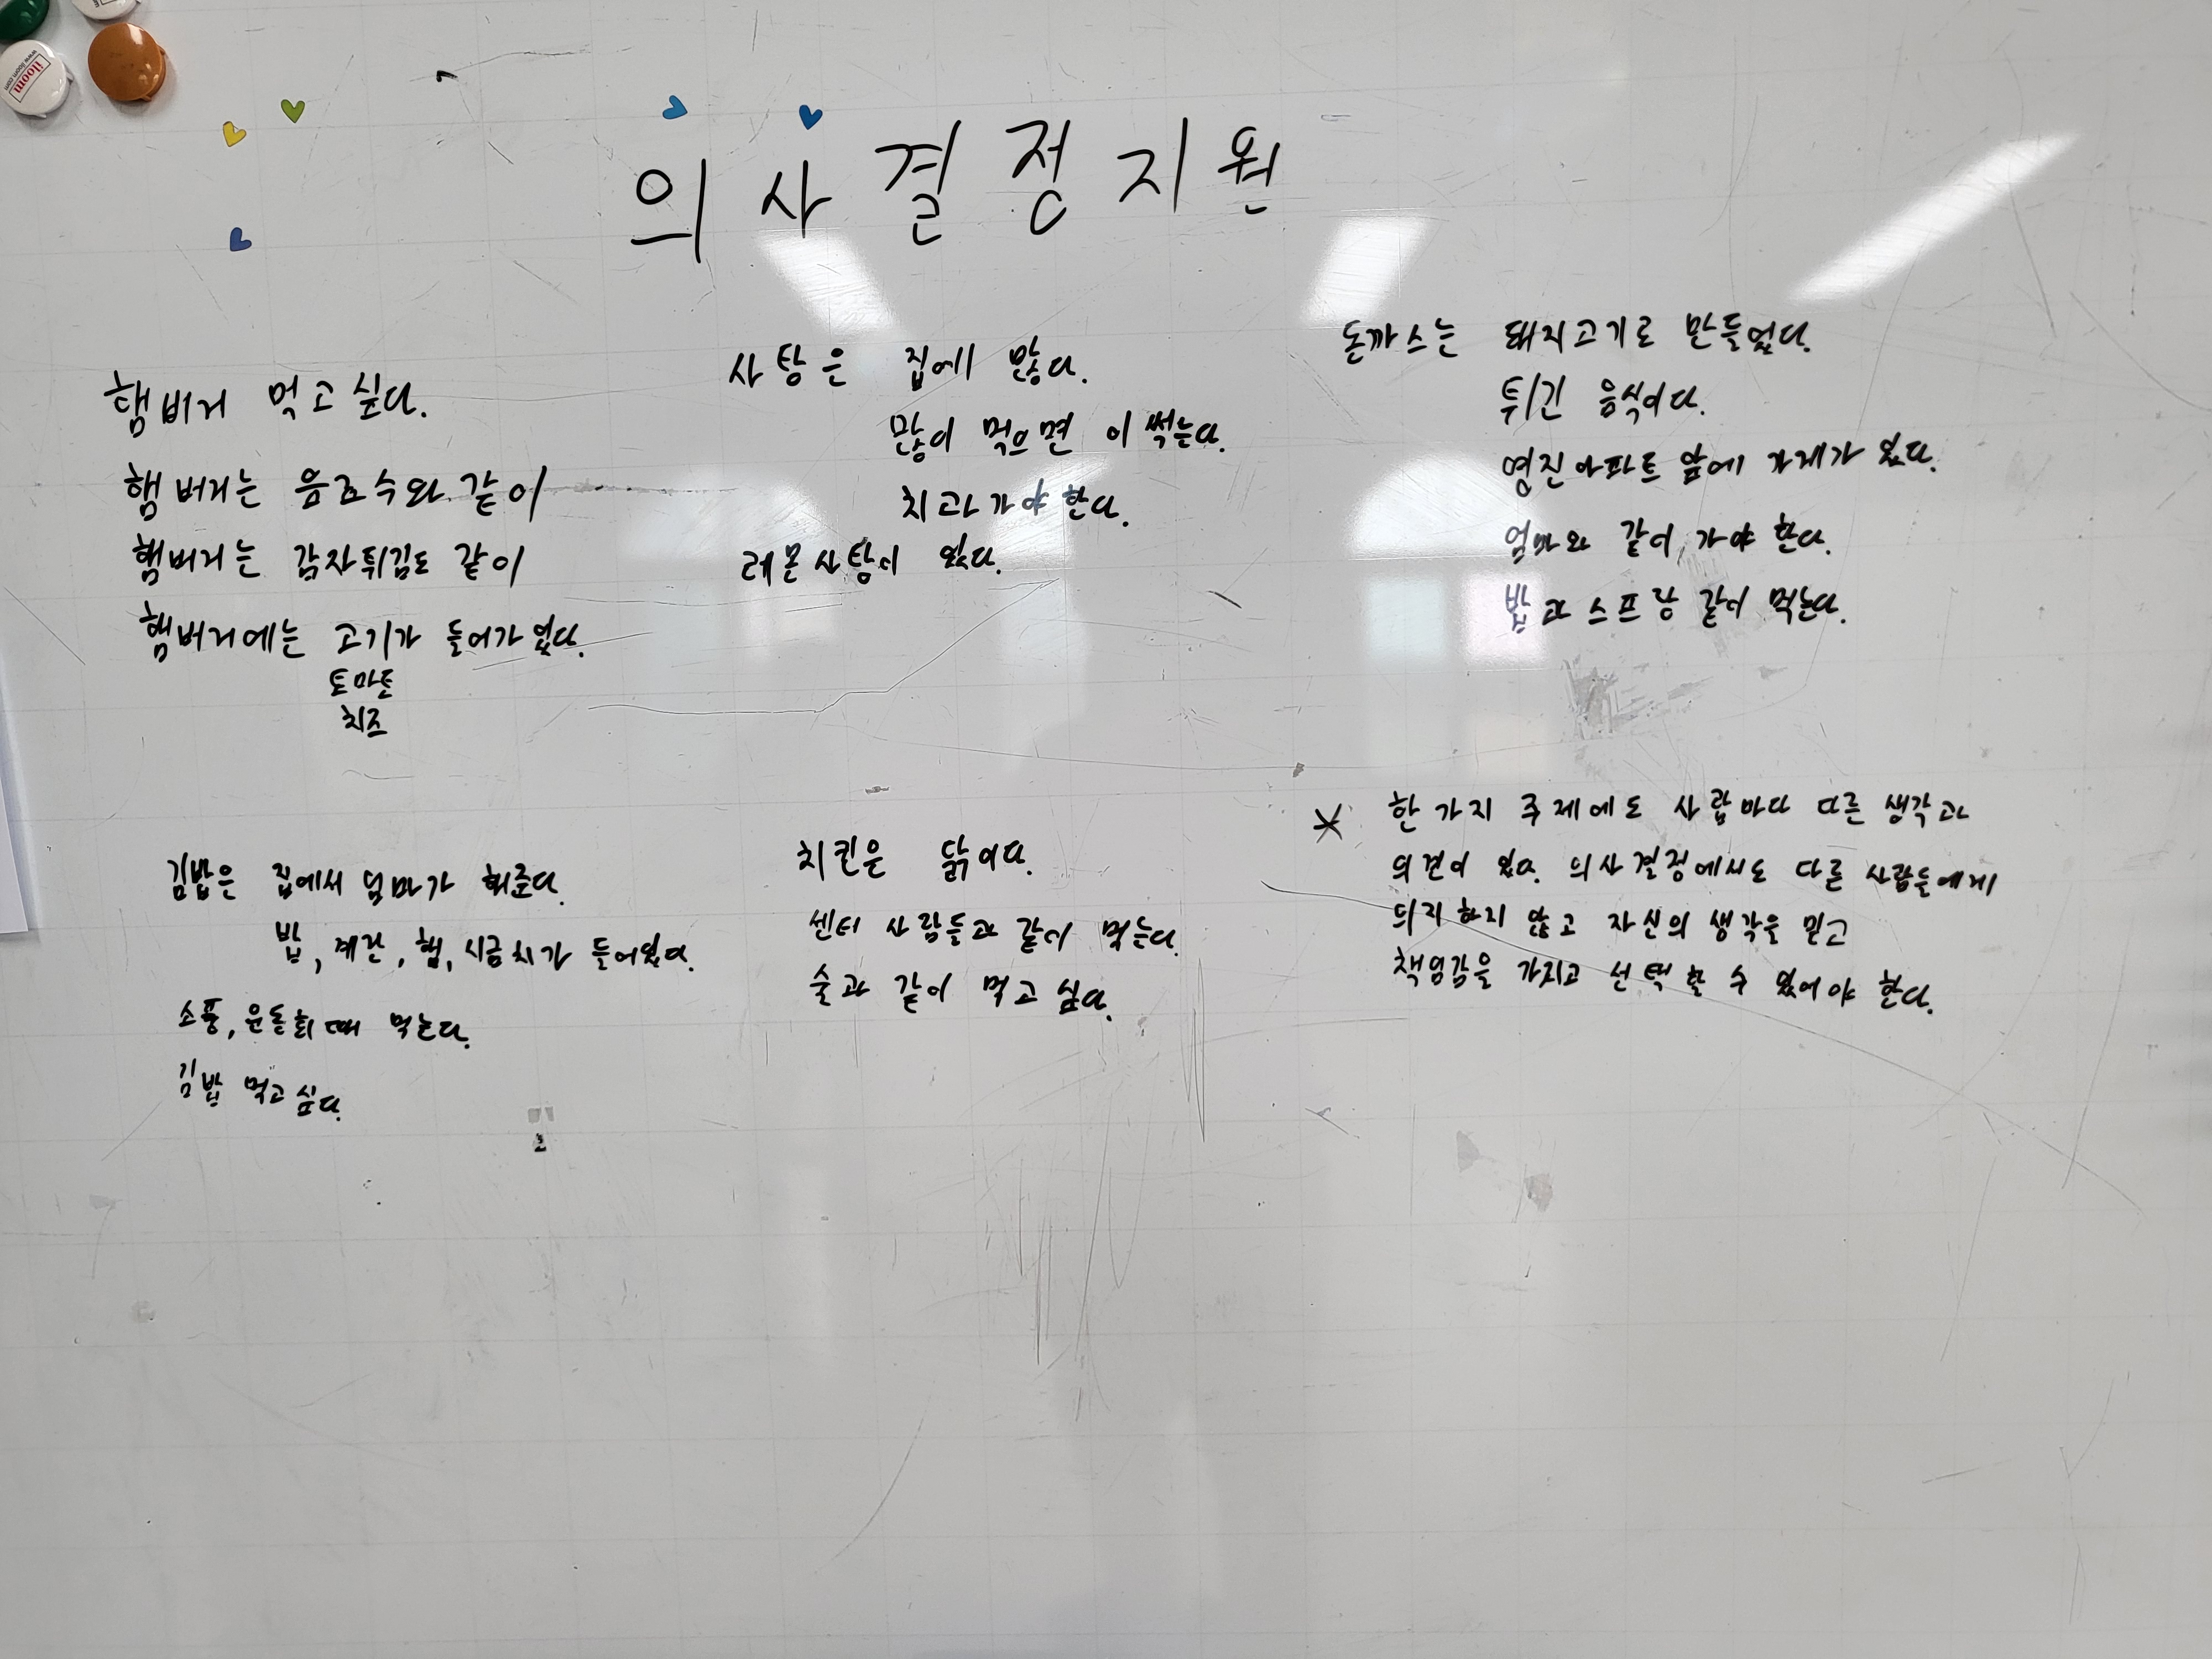 iloom
www.iloom.com
의사결정지원
햄버거 먹고 싶다.
햄버거는 음료수와 같이
햄버거는 감자튀김도 같이
햄버거에는 고기가 들어가 있다.
토마토
치즈
사탕은 집에 많다.
많이 먹으면 이 썩는다.
치과 가야 한다.
레몬사탕이 있다.
돈까스는 돼지고기로 만들었다.
튀긴 음식이다.
영진아파트 앞에 가게가 있다.
엄마와 같이 가야 한다.
밥과 스프랑 같이 먹는다.
김밥은 집에서 엄마가 해준다.
밥, 계란, 햄, 시금치가 들어있다.
소풍, 운동회 때 먹는다.
김밥 먹고 싶다.
치킨은 닭이다.
센터 사람들과 같이 먹는다.
술과 같이 먹고 싶다.
* 한 가지 주제에도 사람마다 다른 생각과
의견이 있다. 의사결정에서도 다른 사람들에게
의지하지 않고 자신의 생각을 믿고
책임감을 가지고 선택할 수 있어야 한다.